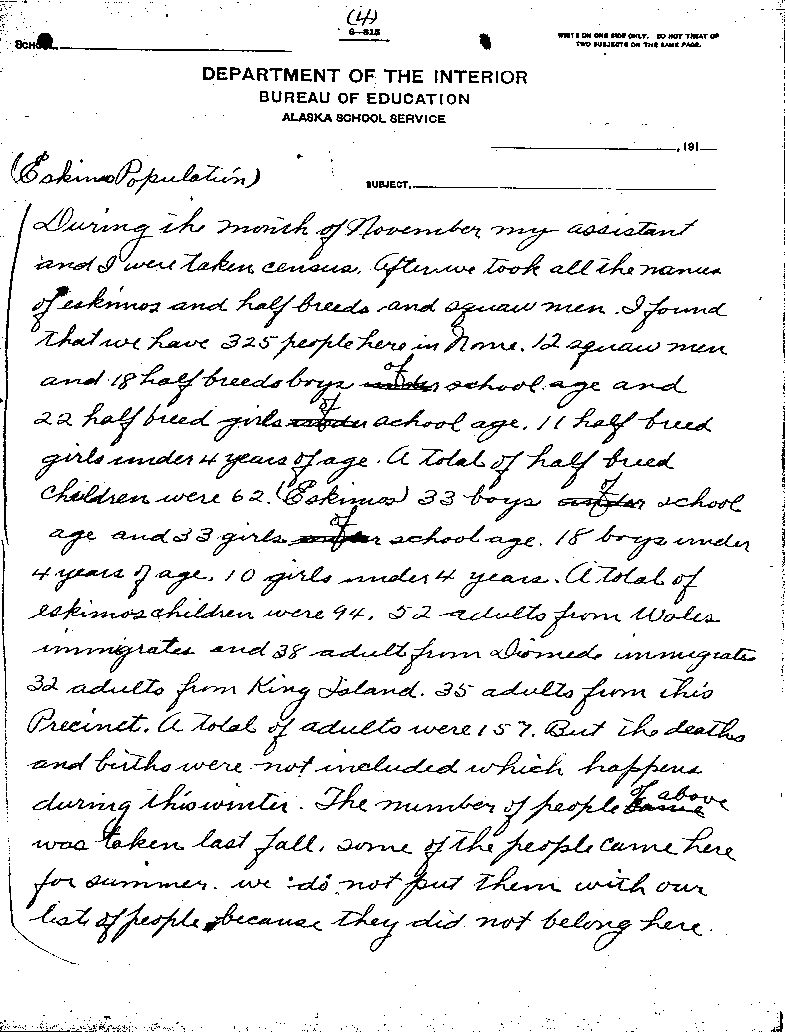 (4)
6-815
SCHOOL
WRITE ON ONE SIDE ONLY. DO NOT TREAT OF
TWO SUBJECTS ON THE SAME PAGE.
DEPARTMENT OF THE INTERIOR
BUREAU OF EDUCATION
ALASKA SCHOOL SERVICE
, 191
(Eskimo Population)
SUBJECT,
During the month of November my assistant
and I were taken census. After we took all the names
of eskimos and half breeds and squaw men. I found
that we have 325 people here in Nome. 12 squaw men
and 18 half breeds boys under of school age and
22 half breed girls under of school age. 11 half breed
girls under 4 years of age. A total of half breed
children were 62. (Eskimos) 33 boys under of school
age and 33 girls under of school age. 18 boys under
4 years of age. 10 girls under 4 years. A total of
eskimos children were 94. 52 adults from Wales
immigrates and 38 adult from Diomede immigrates
32 adults from King Island. 35 adults from this
Precinct. A total of adults were 157. But the deaths
and births were not included which happens
during this winter. The number of people came of above
was taken last fall. some of the people came here
for summer. we do not put them with our
list of people, because they did not belong here.